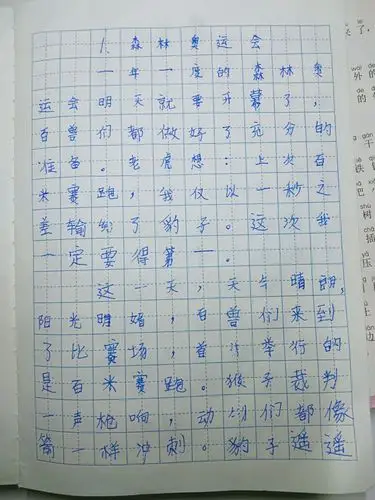 1、森林奥运会
一年一度的森林奥
运会明天就要开幕了，
百兽们都做好了充分的
准备。老虎想：上次百
米赛跑，我仅以一秒之
差输给了豹子。这次我
一定要得第一。
这一天，天气晴朗，
阳光明媚，百兽们来到
了比赛场，首先举行的
是百米赛跑。猴子裁判
一声枪响，动物们都像
箭一样冲刺。豹子遥遥
了，
wài
外
的
的
gān
干
tiě
铁
bā
巴
shù
树
chā
插
yā
压
shàng
上
biān
边